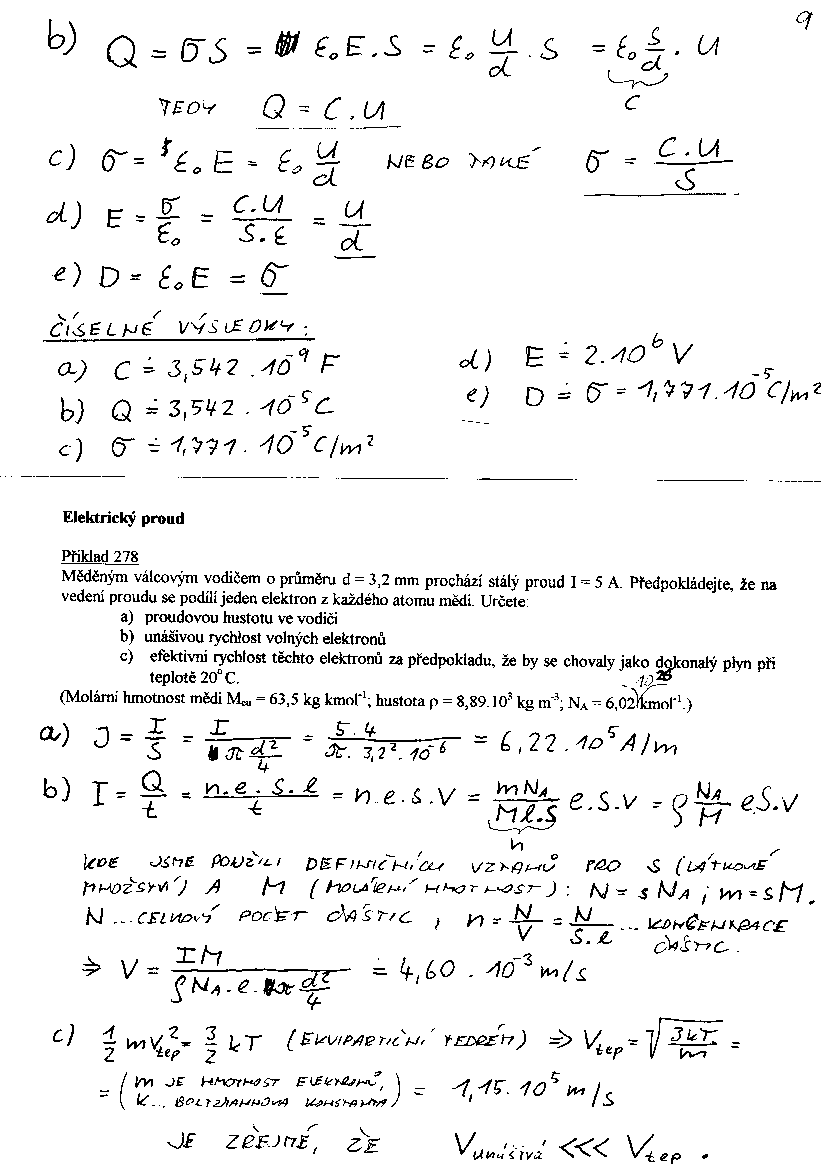 9
b) Q = σS = ε₀E.S = ε₀ U/d . S = ε₀ S/d . U
C
TEDY Q = C.U
c) σ = ε₀E = ε₀ U/d NEBO TAKÉ σ = C.U/S
d) E = σ/ε₀ = C.U/S.ε = U/d
e) D = ε₀E = σ
ČÍSELNÉ VÝSLEDKY:
a) C ≐ 3,542 . 10⁻⁹ F
b) Q ≐ 3,542 . 10⁻⁵ C
c) σ ≐ 1,771 . 10⁻⁵ C/m²
d) E ≐ 2.10⁶ V
e) D ≐ σ = 1,771.10⁻⁵ C/m²
Elektrický proud
Příklad 278
Měděným válcovým vodičem o průměru d = 3,2 mm prochází stálý proud I = 5 A. Předpokládejte, že na
vedení proudu se podílí jeden elektron z každého atomu mědi. Určete:
a) proudovou hustotu ve vodiči
b) unášivou rychlost volných elektronů
c) efektivní rychlost těchto elektronů za předpokladu, že by se chovaly jako dokonalý plyn při
teplotě 20°C.
(Molární hmotnost mědi Mcu = 63,5 kg kmol⁻¹; hustota ρ = 8,89.10³ kg m⁻³; NA = 6,02.10²⁶ kmol⁻¹.)
a) J = I/S = I/(π d²/4) = 5.4/(π. 3,2². 10⁻⁶) = 6,22.10⁵ A/m
b) I = Q/t = n.e.S.l/t = n.e.S.V = mNA/Ml.S e.S.v = ρ NA/M eS.v
n
KDE JSME POUŽILI DEFINIČNÍCH VZTAHŮ PRO S (LÁTKOVÉ
MNOŽSTVÍ) A M (MOLÁRNÍ HMOTNOST): N = sNA ; m = sM.
N ... CELKOVÝ POČET ČÁSTIC, n = N/V = N/S.l ... KONCENTRACE
ČÁSTIC.
⇒ V = IM/(ρNA.e.π d²/4) = 4,60 . 10⁻³ m/s
c) 1/2 mv²tep = 3/2 kT (EKVIPARTIČNÍ TEORÉM) ⇒ Vtep = √(3kT/m) =
= (m JE HMOTNOST ELEKTRONU,
k... BOLTZMANNOVA KONSTANTA) = 1,15.10⁵ m/s
JE ZŘEJMÉ, ŽE Vunášivá <<< Vtep.